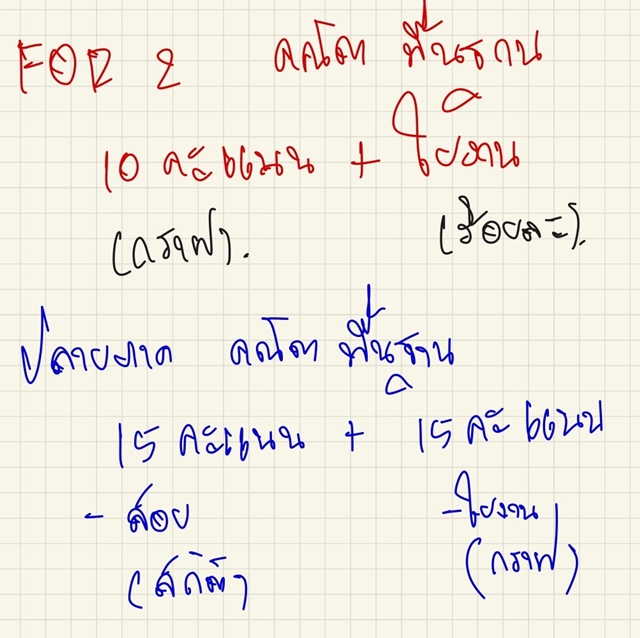 FOR 2 คณิต พื้นฐาน
10 คะแนน + ใบงาน
(กราฟ). (ร้อยละ).
ปลายภาค คณิต พื้นฐาน
15 คะแนน + 15 คะแนน
- สอบ - ใบงาน
(สถิติ) (กราฟ)